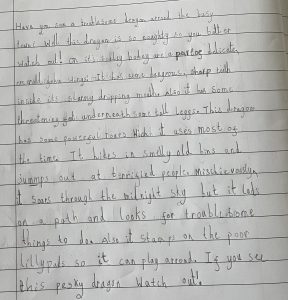 Have you seen a troublesome dragon arround the busy
town? Well this dragon is so naughty so you better
watch out! On its scaly body are a pair of delicate
emerald wings. It has some dangerous, sharp teeth
inside its slimey dripping mouth. Also it has some
threatening underneath some tall legges. This dragon
has some powerful Jaws Wich it uses most of
the time. It hides in smelly old bins and
Jummps out at terrified people. Mischievously
it soars through the midnight sky but it lads
on a path and looks for troublesome
things to doo. Also it stamps on the poor
lillypads so it can play arround. If you see
this pesky dragon Watch out!